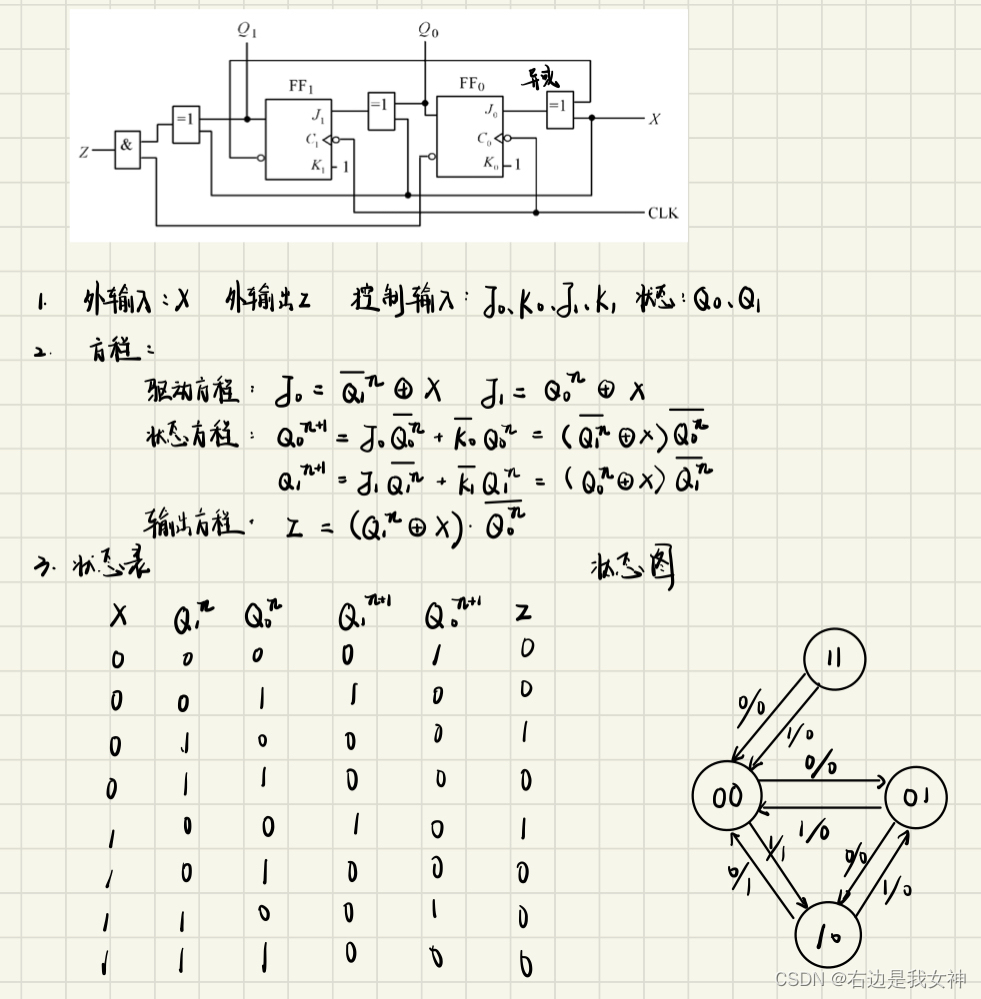 Q₁ Q₀
FF₁ FF₀ 异或
=1 J₁ =1 J₀ =1 X
Z & C₁ C₀
K₁ 1 K₀ 1
CLK
1. 外输入:X 外输出Z 控制输入:J₀、K₀、J₁、K₁ 状态:Q₀、Q₁
2. 方程:
驱动方程: J₀ = Q̅₁ⁿ ⊕ X J₁ = Q₀ⁿ ⊕ X
状态方程: Q₀ⁿ⁺¹ = J₀ Q̅₀ⁿ + K̅₀ Q₀ⁿ = (Q̅₁ⁿ ⊕ X) Q̅₀ⁿ
Q₁ⁿ⁺¹ = J₁ Q̅₁ⁿ + K̅₁ Q₁ⁿ = (Q₀ⁿ ⊕ X) Q̅₁ⁿ
输出方程: Z = (Q₁ⁿ ⊕ X) · Q̅₀ⁿ
3. 状态表 状态图
X Q₁ⁿ Q₀ⁿ Q₁ⁿ⁺¹ Q₀ⁿ⁺¹ Z
0 0 0 0 1 0
0 0 1 1 0 0
0 1 0 0 0 1
0 1 1 0 0 0
1 0 0 1 0 1
1 0 1 0 0 0
1 1 0 0 1 0
1 1 1 0 0 0
11
0/0 1/0
0/0
00 01
1/0
0/1 1/1 0/0 1/0
10
CSDN @右边是我女神